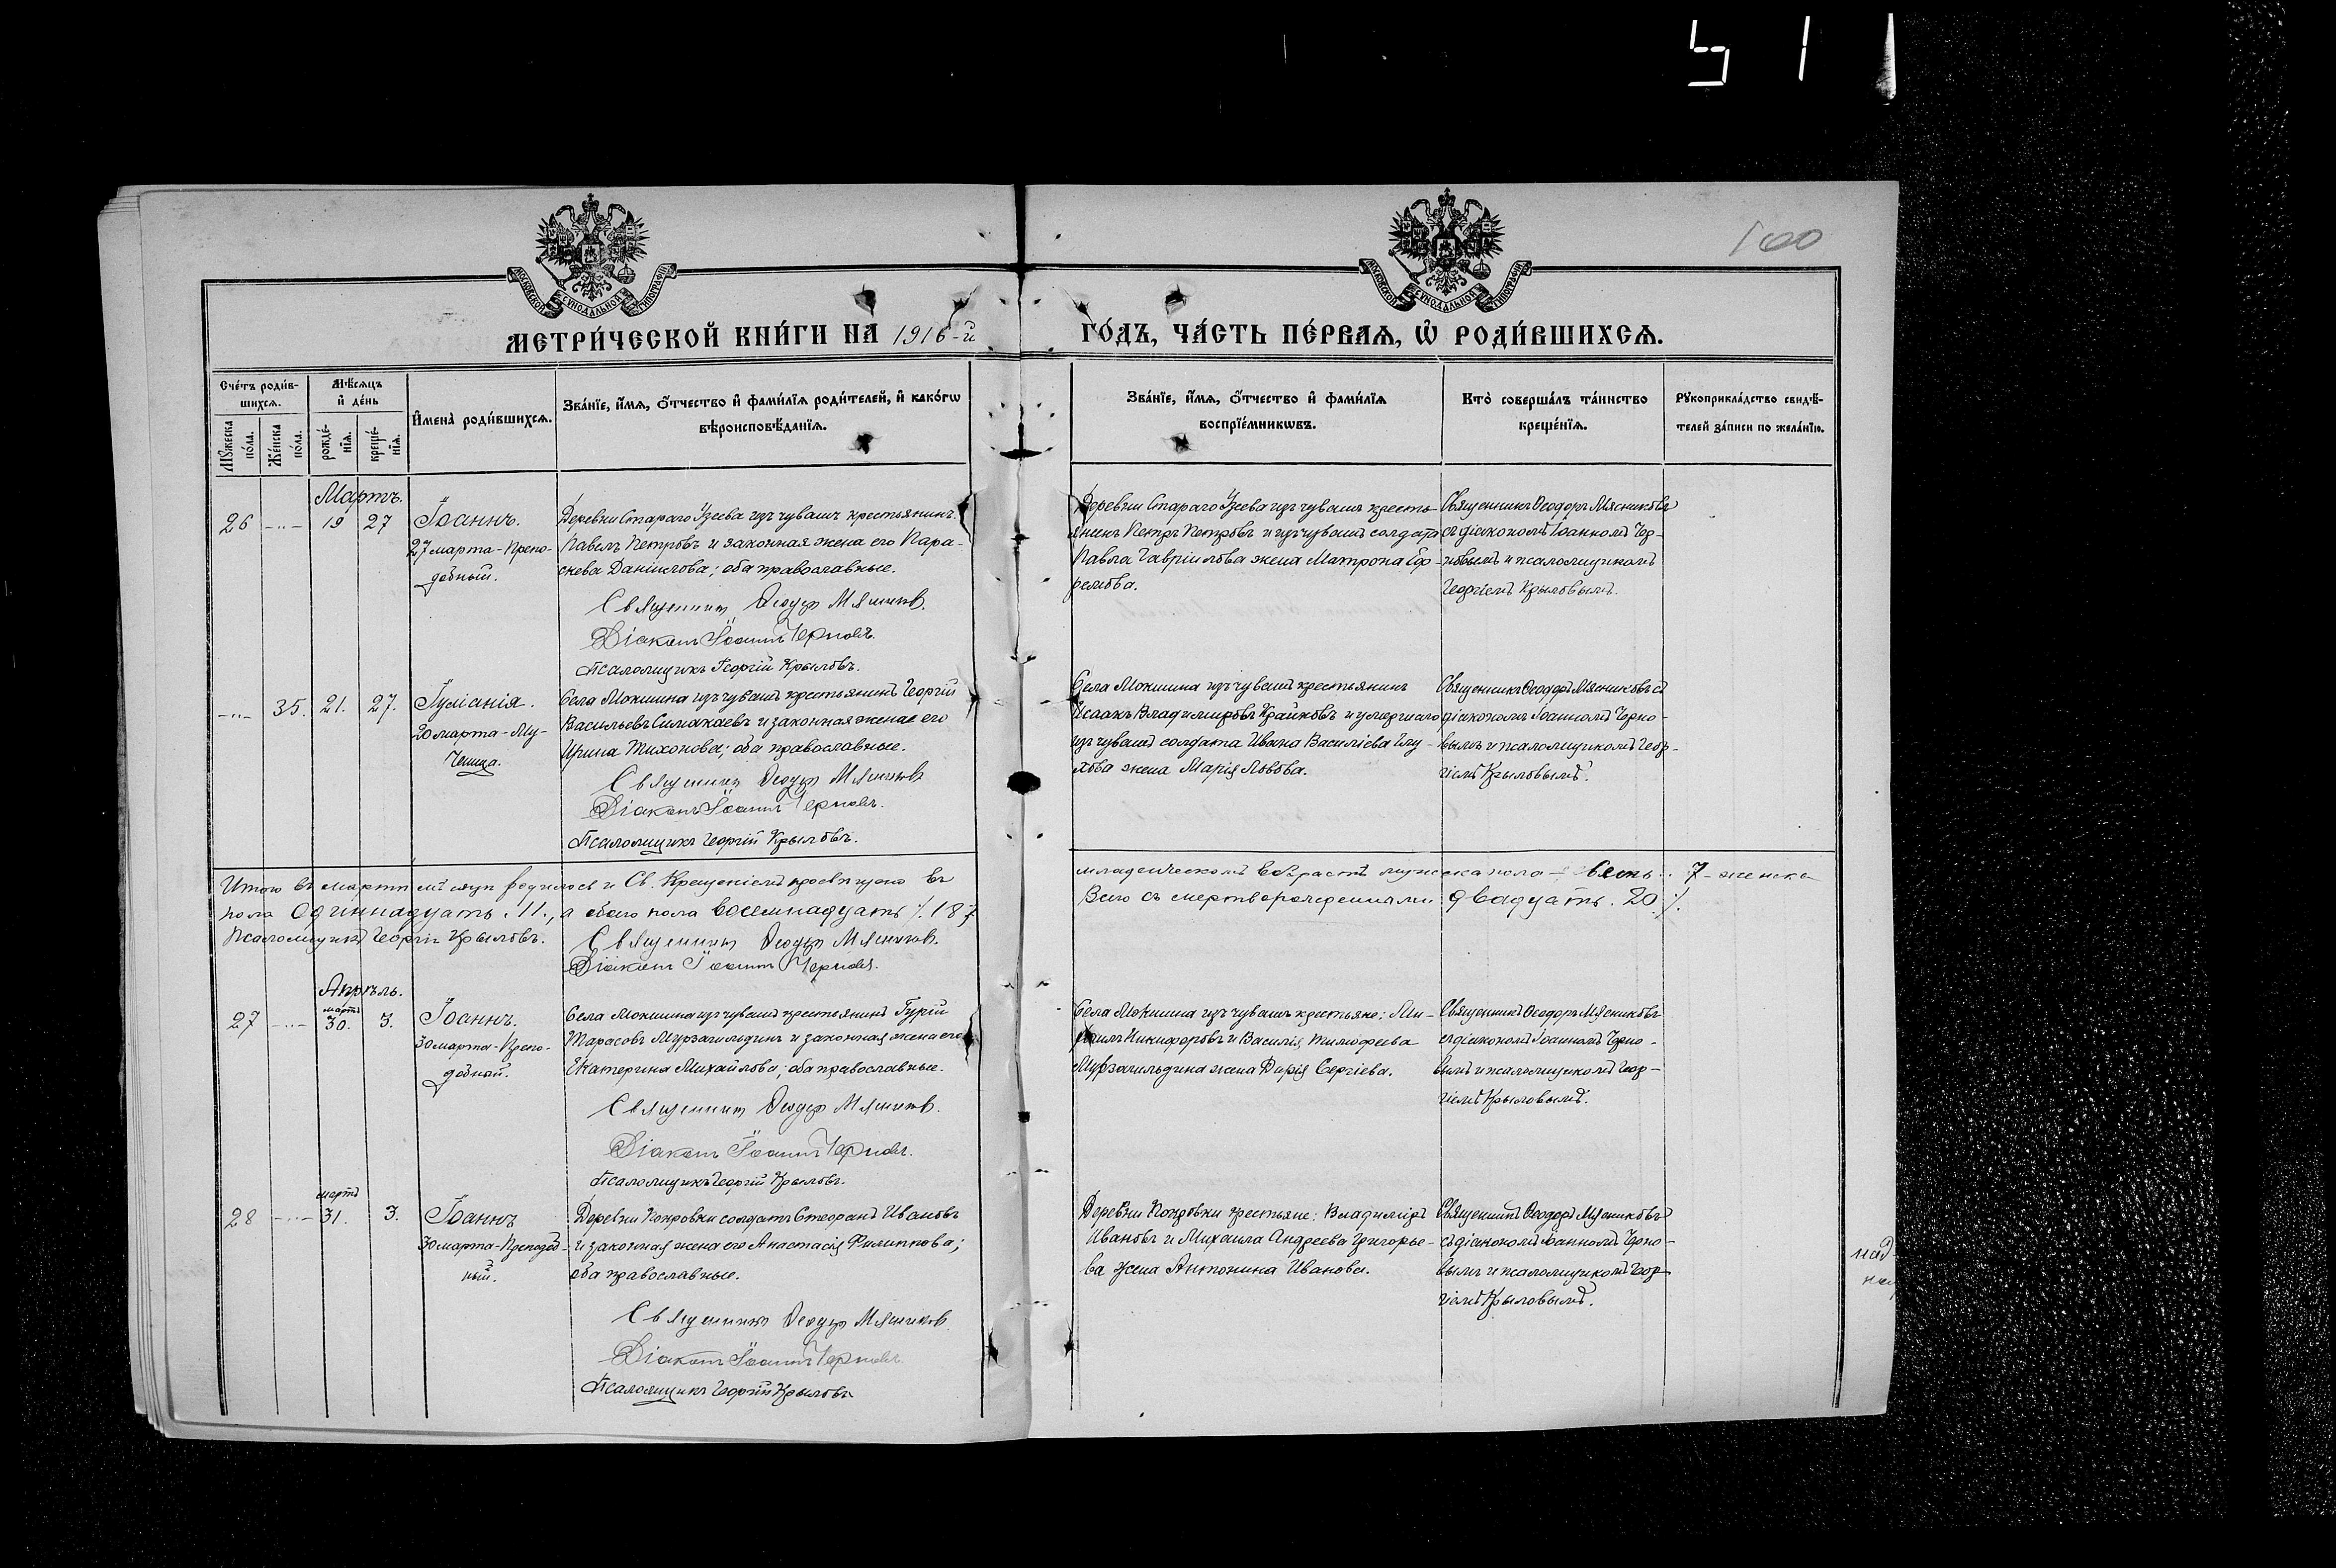 511
100
МОСКОВСКОЙ СѴНОДАЛЬНОЙ ТИПОГРАФІИ
МОСКОВСКОЙ СѴНОДАЛЬНОЙ ТИПОГРАФІИ
МЕТРИ́ЧЕСКОЙ КНИ́ГИ НА 1916-й
ГО́ДЪ, ЧА́СТЬ ПЕ́РВАѦ, Ѡ҆ РОДИ́ВШИХСѦ.
Сче́тъ роди́в-
шихсѧ.
Мꙋжеска по́ла.
Же́нска по́ла.
Мѣ́сѧцъ
и҆ де́нь
рожде́-
нїѧ.
креще́-
нїѧ.
И҆мена̀ роди́вшихсѧ.
Зва́нїе, и҆́мѧ, ѻ҆́тчество и҆ фами́лїѧ роди́телей, и҆ како́гѡ
вѣроисповѣ́данїѧ.
Зва́нїе, и҆́мѧ, ѻ҆́тчество и҆ фами́лїѧ
воспрїе́мникѡвъ.
Кто̀ соверша́лъ та́инство
креще́нїѧ.
Рꙋкоприкла́дство свидѣ́-
телей за́писи по жела́нїю.
Мартъ.
26 -„- 19 27
Іоаннъ.
27 марта - Препо-
добный.
Деревни Стараго Узеева изъ чувашъ крестьянинъ
Павелъ Петровъ и законная жена его Пара-
скева Даніилова; оба православные.
Священникъ Ѳеодоръ Мясниковъ.
Діаконъ Іоаннъ Черновъ.
Псаломщикъ Георгій Крыловъ.
Деревни Стараго Узеева изъ чувашъ кресть-
янинъ Петръ Петровъ и изъ чувашъ солдата
Павла Гавріилова жена Матрона Еф-
ремова.
Священникъ Ѳеодоръ Мясниковъ
съ діакономъ Іоанномъ Чер-
новымъ и псаломщикомъ
Георгіемъ Крыловымъ.
-„- 35. 21. 27.
Іуліанія.
20 марта - Му-
ченица.
Села Мокшина изъ чувашъ крестьянинъ Георгій
Васильевъ Симакаевъ и законная жена его
Ирина Тихонова; оба православные.
Священникъ Ѳеодоръ Мясниковъ
Діаконъ Іоаннъ Черновъ.
Псаломщикъ Георгій Крыловъ.
Села Мокшина изъ чувашъ крестьянинъ
Исаакъ Владимировъ Крайновъ и умершаго
изъ чувашъ солдата Ивана Василіева
жена Марія Львова.
Священникъ Ѳеодоръ Мясниковъ съ
діакономъ Іоанномъ Черно-
вымъ и псаломщикомъ Геор-
гіемъ Крыловымъ.
Итого въ мартѣ мѣсяцѣ родилось и Св. Крещеніемъ просвѣщено въ
младенческомъ возрастѣ мужеска пола - 7 - женска
пола одиннадцать. 11., а обоего пола восемнадцать ./. 18 ./.
Всего съ мертворожденными двадцать. 20 ./.
Псаломщикъ Георгій Крыловъ.
Священникъ Ѳеодоръ Мясниковъ.
Діаконъ Іоаннъ Черновъ.
Апрѣль.
27 -„- мартъ 30. 3.
Іоаннъ.
30 марта - Препо-
добный.
Села Мокшина изъ чувашъ крестьянинъ Гурій
Тарасовъ Мурзагильдинъ и законная жена его
Екатерина Михайлова; оба православные.
Священникъ Ѳеодоръ Мясниковъ.
Діаконъ Іоаннъ Черновъ.
Псаломщикъ Георгій Крыловъ.
Села Мокшина изъ чувашъ крестьяне: Ми-
хаилъ Никифоровъ и Василія Тимофеева
Мурзагильдина жена Дарія Сергіева.
Священникъ Ѳеодоръ Мясниковъ
съ діакономъ Іоанномъ Черно-
вымъ и псаломщикомъ Геор-
гіемъ Крыловымъ.
28 -„- мартъ 31. 3.
Іоаннъ
30 марта - Преподоб-
ный.
Деревни Покровки солдатъ Стефанъ Ивановъ
и законная жена его Анастасія Филиппова;
оба православные.
Священникъ Ѳеодоръ Мясниковъ
Діаконъ Іоаннъ Черновъ
Псаломщикъ Георгій Крыловъ
Деревни Покровки крестьяне: Владиміръ
Ивановъ и Михаила Андреева Григорье-
ва жена Антонина Иванова.
Священникъ Ѳеодоръ Мясниковъ
съ діакономъ Іоанномъ Черно-
вымъ и псаломщикомъ Геор-
гіемъ Крыловымъ.